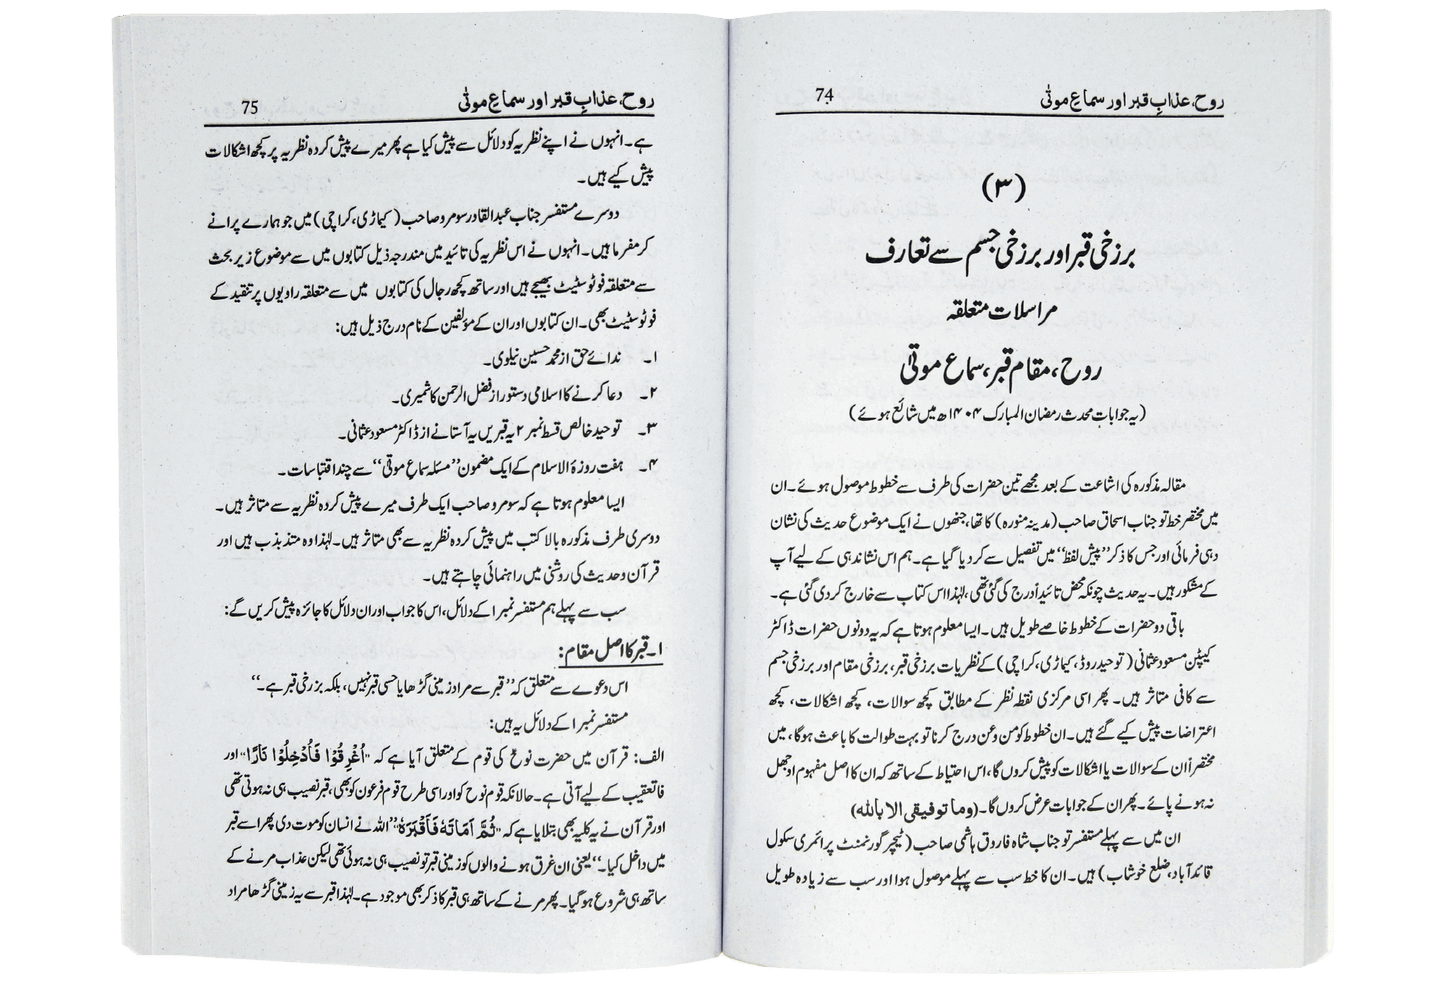 روح، عذابِ قبر اور سماعِ موتٰی 74
(۳)
برزخی قبر اور برزخی جسم سے تعارف
مراسلات متعلقہ
روح، مقام قبر، سماع موتیٰ
(یہ جوابات محدث رمضان المبارک ۱۴۰۴ھ میں شائع ہوئے)
مقالہ مذکورہ کی اشاعت کے بعد مجھے تین حضرات کی طرف سے خطوط موصول ہوئے۔ ان
میں مختصر خط تو جناب اسحاق صاحب (مدینہ منورہ) کا تھا، جنھوں نے ایک موضوع حدیث کی نشان
دہی فرمائی اور جس کا ذکر ’’پیش لفظ‘‘ میں تفصیل سے کر دیا گیا ہے۔ ہم اس نشاندہی کے لیے آپ
کے مشکور ہیں۔ یہ حدیث چونکہ محض تائیداً درج کی گئی تھی، لہٰذا اس کتاب سے خارج کر دی گئی ہے۔
باقی دو حضرات کے خطوط خاصے طویل ہیں۔ ایسا معلوم ہوتا ہے کہ یہ دونوں حضرات ڈاکٹر
کیپٹن مسعود عثمانی (توحید روڈ، کیماڑی، کراچی) کے نظریات برزخی قبر، برزخی مقام اور برزخی جسم
سے کافی متاثر ہیں۔ پھر اسی مرکزی نقطہ نظر کے مطابق کچھ سوالات، کچھ اشکالات، کچھ
اعتراضات پیش کیے گئے ہیں۔ ان خطوط کو من و عن درج کرنا تو بہت طوالت کا باعث ہوگا، میں
مختصراً ان کے سوالات یا اشکالات کو پیش کروں گا، اس احتیاط کے ساتھ کہ ان کا اصل مفہوم اوجھل
نہ ہونے پائے۔ پھر ان کے جوابات عرض کروں گا۔ (وما توفیقی الا باللہ)
ان میں سے پہلے مستفسر تو جناب شاہ فاروق ہاشمی صاحب (ٹیچر گورنمنٹ پرائمری سکول
قائد آباد، ضلع خوشاب) ہیں۔ ان کا خط سب سے پہلے موصول ہوا اور سب سے زیادہ طویل
روح، عذابِ قبر اور سماعِ موتٰی 75
ہے۔ انہوں نے اپنے نظریہ کو دلائل سے پیش کیا ہے پھر میرے پیش کردہ نظریہ پر کچھ اشکالات
پیش کیے ہیں۔
دوسرے مستفسر جناب عبدالقادر سومرو صاحب (کیماڑی، کراچی) میں جو ہمارے پرانے
کرمفرما ہیں۔ انہوں نے اس نظریہ کی تائید میں مندرجہ ذیل کتابوں میں سے موضوع زیر بحث
سے متعلقہ فوٹو سٹیٹ بھیجے ہیں اور ساتھ کچھ رجال کی کتابوں میں سے متعلقہ راویوں پر تنقید کے
فوٹو سٹیٹ بھی۔ ان کتابوں اور ان کے مؤلفین کے نام درج ذیل ہیں:
۱۔ ندائے حق از محمد حسین نیلوی۔
۲۔ دعا کرنے کا اسلامی دستور از فضل الرحمن کاشمیری۔
۳۔ توحید خالص قسط نمبر ۲ یہ قبریں یہ آستانے از ڈاکٹر مسعود عثمانی۔
۴۔ ہفت روزۂ الاسلام کے ایک مضمون ’’مسئلہ سماعِ موتی‘‘ سے چند اقتباسات۔
ایسا معلوم ہوتا ہے کہ سومرو صاحب ایک طرف میرے پیش کردہ نظریہ سے متاثر ہیں۔
دوسری طرف مذکورہ بالا کتب میں پیش کردہ نظریہ سے بھی متاثر ہیں۔ لہٰذا وہ متذبذب ہیں اور
قرآن و حدیث کی روشنی میں راہنمائی چاہتے ہیں۔
سب سے پہلے ہم مستفسر نمبر ۱ کے دلائل، اس کا جواب اور ان دلائل کا جائزہ پیش کریں گے:
۱۔ قبر کا اصل مقام:
اس دعوے سے متعلق کہ ’’قبر سے مراد زمینی گڑھا یا حسی قبر نہیں، بلکہ بزرخی قبر ہے۔‘‘
مستفسر نمبر ۱ کے دلائل یہ ہیں:
الف: قرآن میں حضرت نوحؑ کی قوم کے متعلق آیا ہے کہ ’’اُغْرِقُوْا فَاُدْخِلُوْا نَارًا‘‘ اور
فا تعقیب کے لیے آتی ہے۔ حالانکہ قوم نوح کو اور اسی طرح قوم فرعون کو بھی، قبر نصیب ہی نہ ہوتی تھی
اور قرآن نے یہ کلیہ بھی بتلایا ہے کہ ’’ثُمَّ اَمَاتَهٗ فَاَقْبَرَهٗ‘‘ ’’اللہ نے انسان کو موت دی پھر اسے قبر
میں داخل کیا۔‘‘ یعنی ان غرق ہونے والوں کو زمینی قبر تو نصیب ہی نہ ہوئی تھی لیکن عذاب مرنے کے
ساتھ ہی شروع ہو گیا۔ پھر مرنے کے ساتھ ہی قبر کا ذکر بھی موجود ہے۔ لہٰذا قبر سے یہ زمینی گڑھا مراد